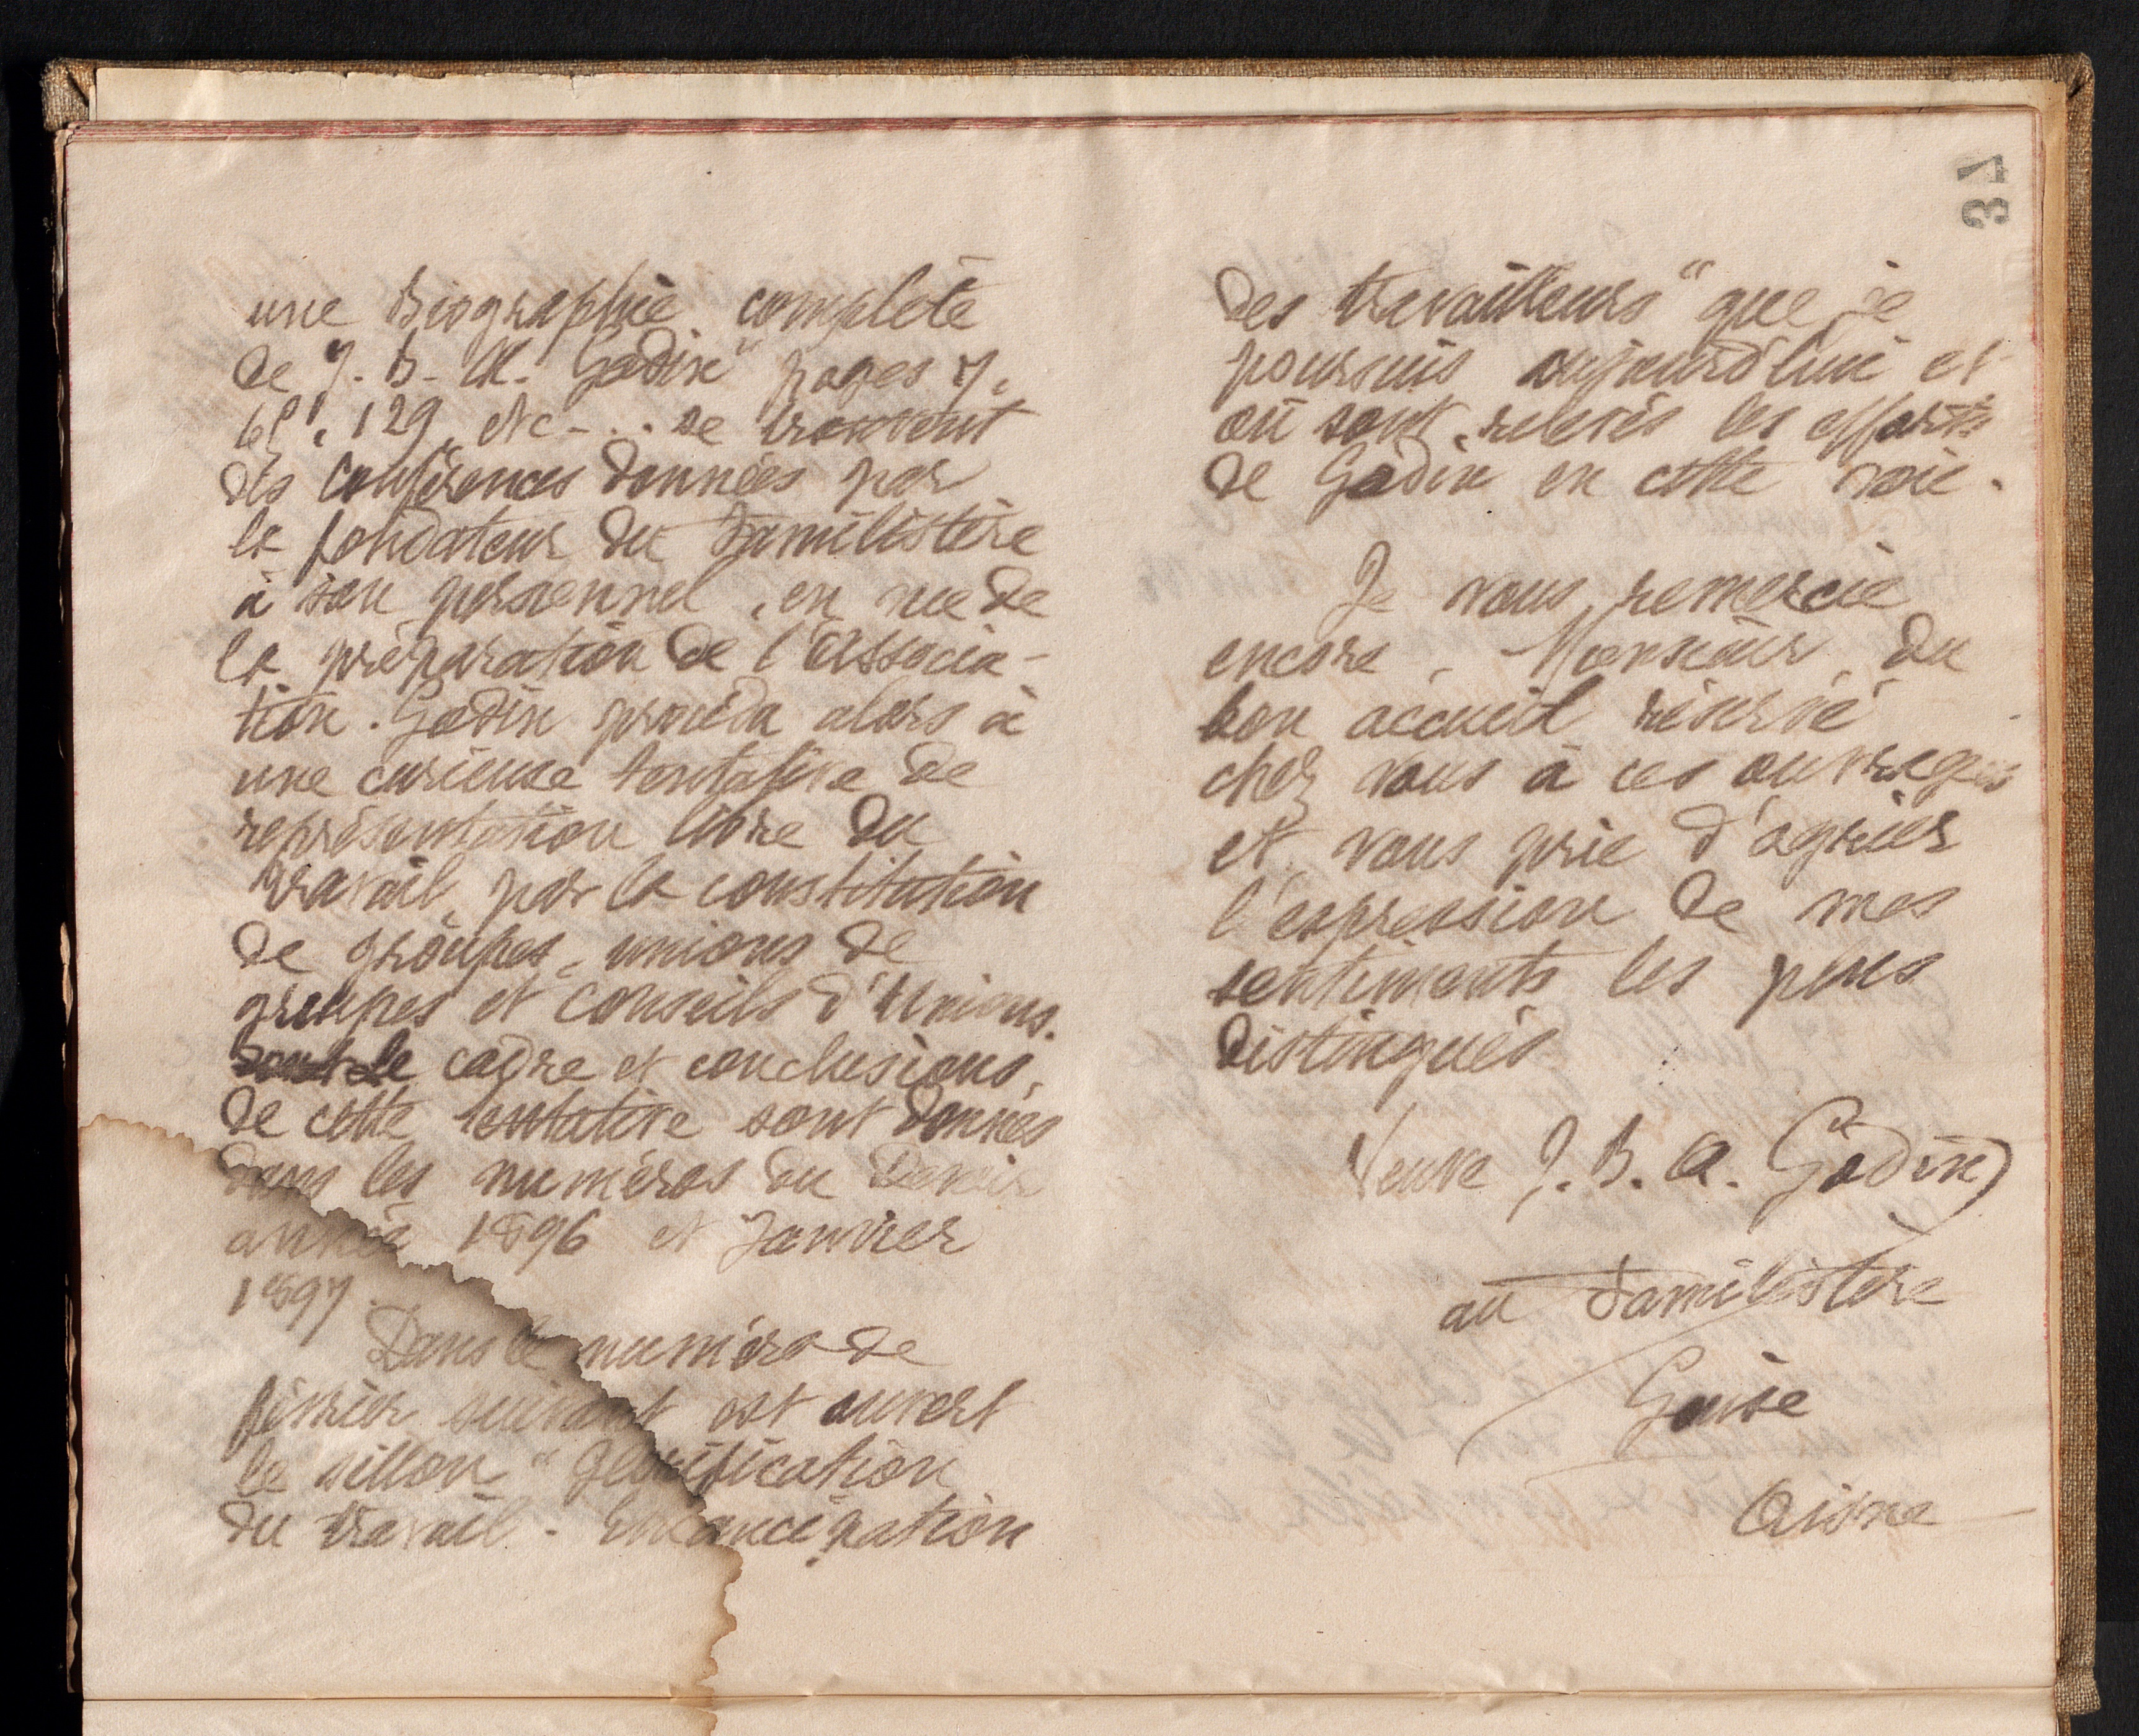 une Biographie complète
de J. B. A. Godin" pages 7,
65, 129, etc... se trouvent
des conférences données par
le fondateur du Familistère
à son personnel, en vue de
la préparation de l'Associa-
tion. Godin procéda alors à
une curieuse tentative de
représentation libre du
travail par la constitution
de groupes, unions de
groupes et conseils d'Unions.
le cadre et conclusions,
de cette tentative sont données
dans les numéros du Devoir
année 1896 et Janvier
1897.
Dans le numéro de
février suivant est ouvert
le sillon "Glorification
du travail. Emancipation
37
des travailleurs" que je
poursuis aujourd'hui et
où sont relevés les efforts
de Godin en cette voie.
Je vous remercie
encore, Monsieur, du
bon accueil réservé
chez vous à ces ouvrages
et vous prie d'agréer
l'expression de mes
sentiments les plus
distingués
Veuve J. B. A. Godin
au Familistère
Guise
Aisne